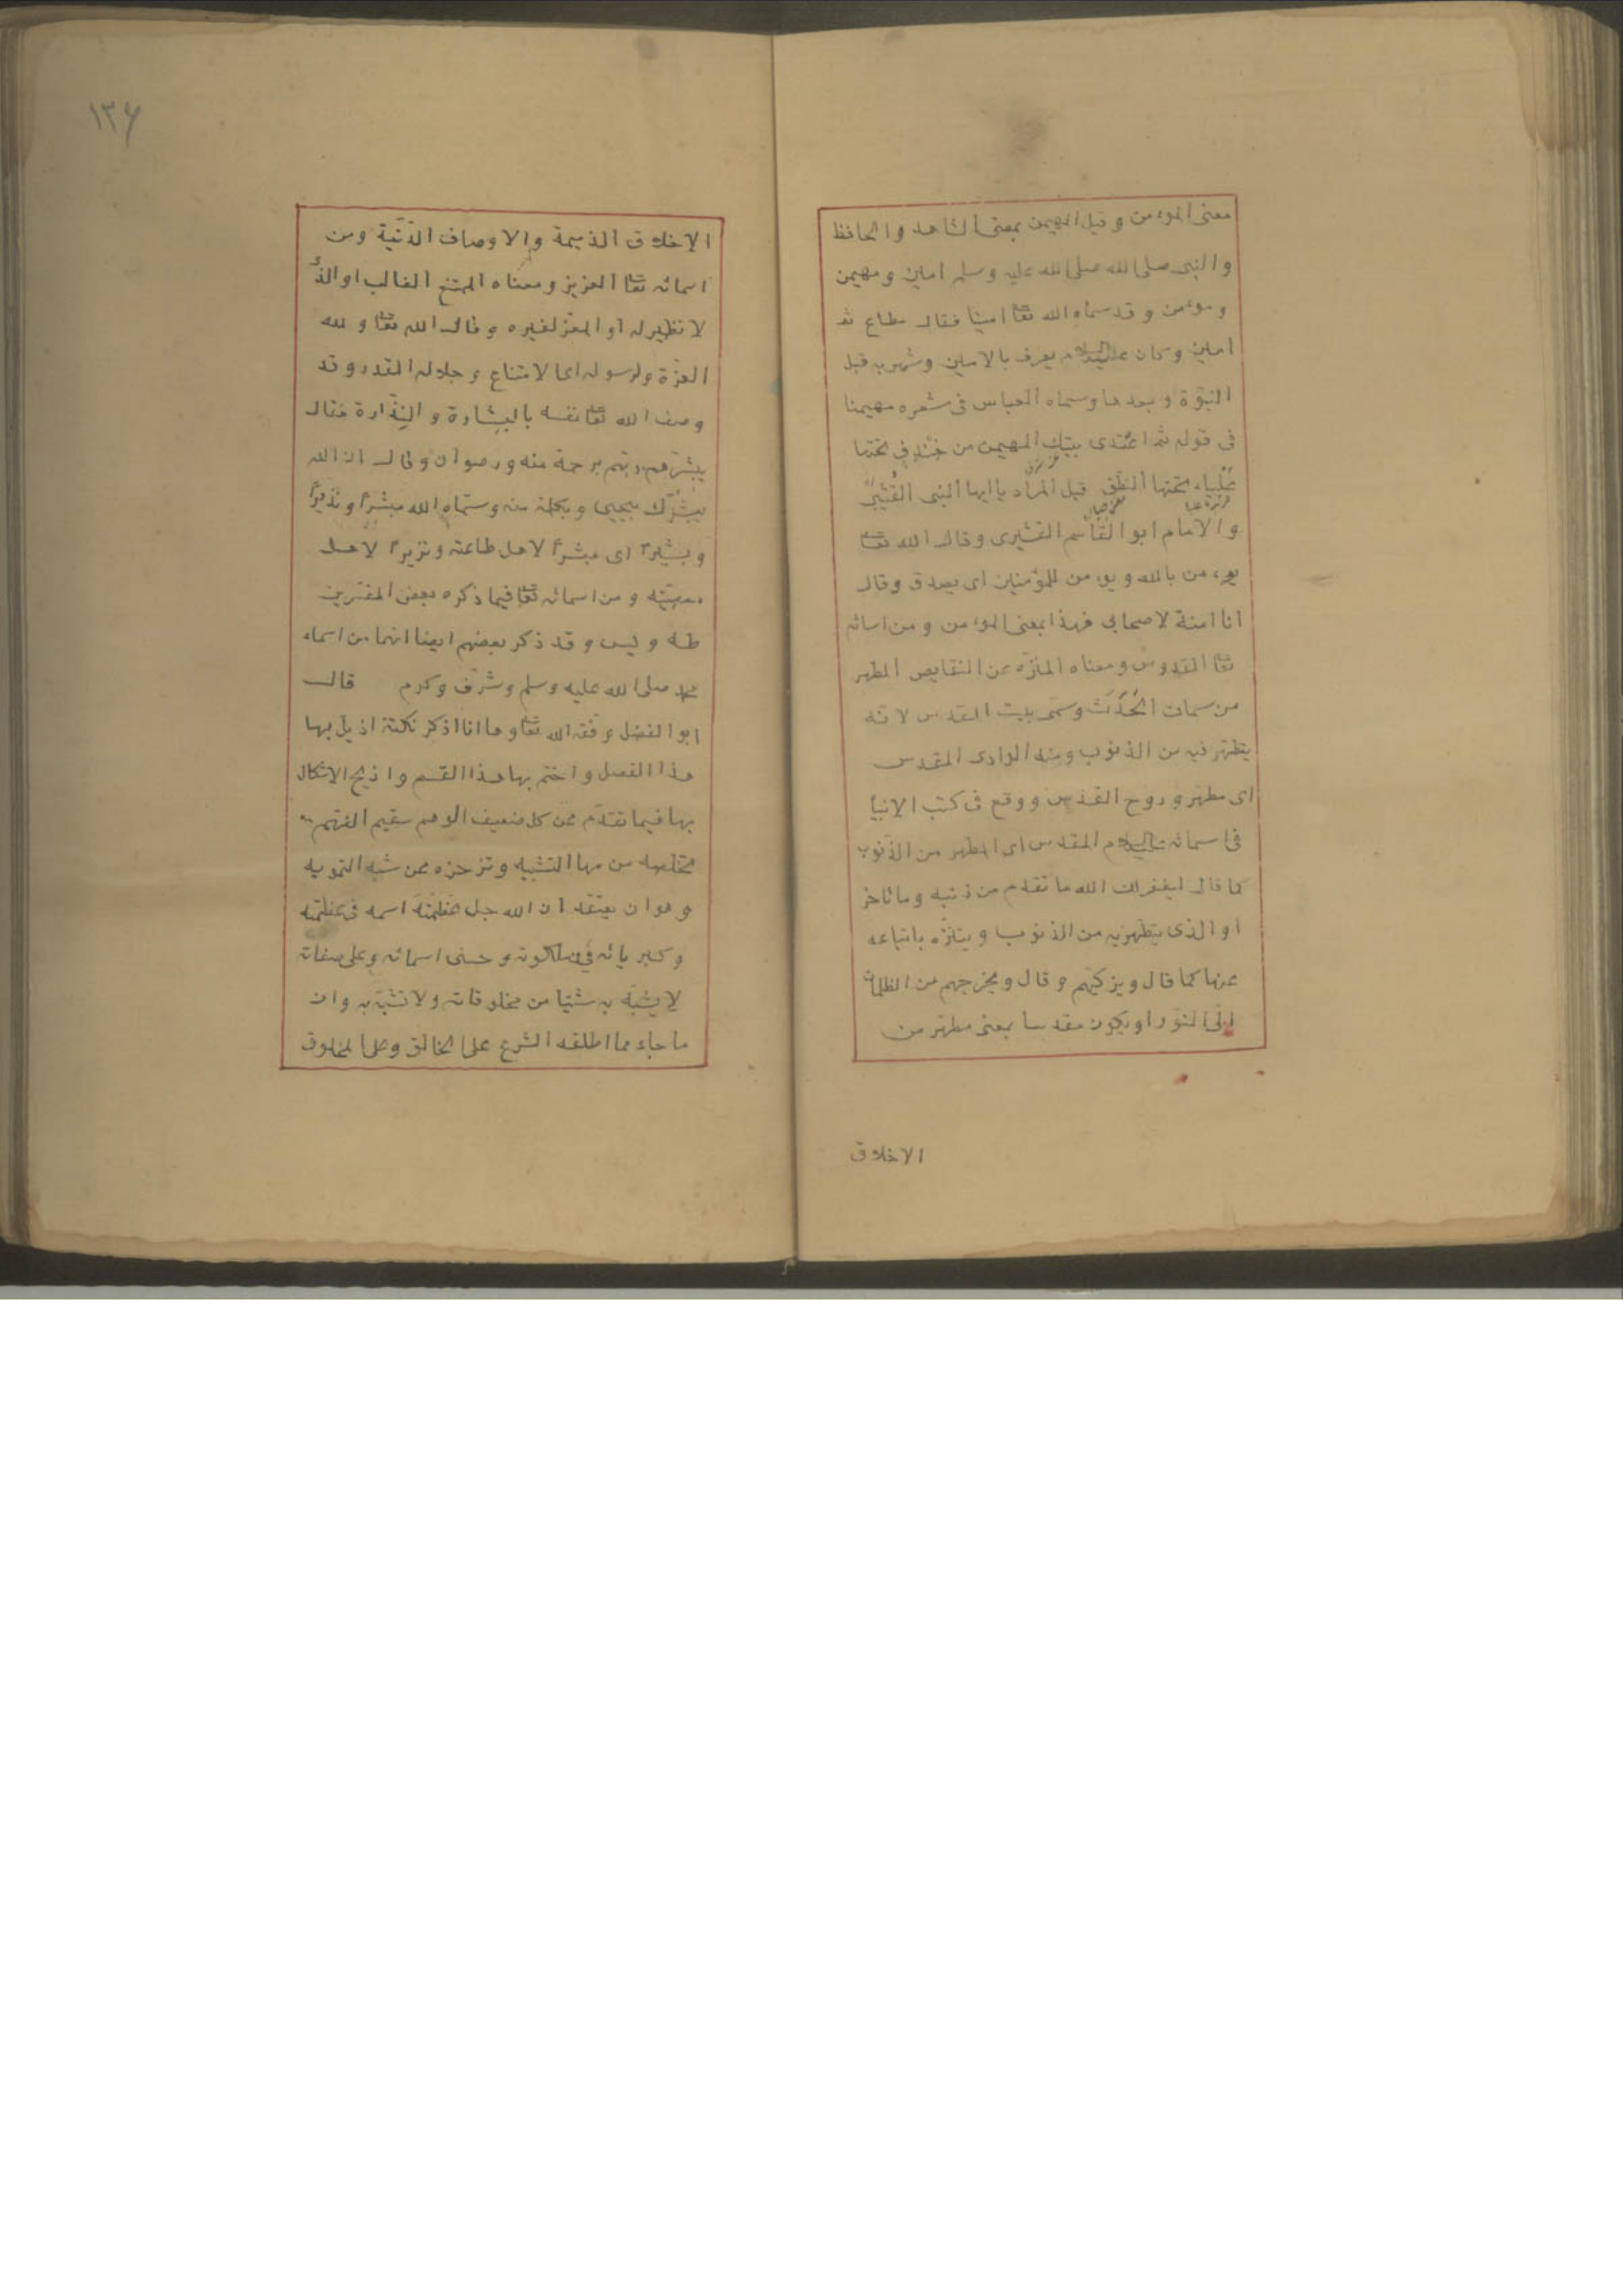 معنى المؤمن وقيل المهيمن بمعنى الشاهد والحافظ
والنبى صلى الله صلى الله عليه وسلم امين ومهيمن
ومؤمن وقد سماه الله تعا امينا فقال مطاع ثم
امين وكان عليه السلام يعرف بالامين وشهر به قبل
النبوّة وبعدها وسماه العباس فى شعره مهيمنا
فى قوله ثم اغتدى بيتك المهيمن من خندف تحتها
عَلْياء تحتها النطق قيل المراد يا ايها النبى القُتَيْبىّ
والامام ابو القاسم القشيرى وقال الله تعا
يؤمن بالله ويؤمن للمؤمنين اى يصدق وقال
انا امنة لاصحابى فهذا بمعنى المؤمن ومن اسمائه
تعا القدوس ومعناه المنزّه عن النقايص المطهر
من سمات الحَدَث وسمى بيت المقدس لانّه
يتطهر فيه من الذنوب ومنه الوادى المقدس
اى مطهر وروح القدس ووقع فى كتب الانبيا
فى اسمائه عليه السلام المقدس اى المطهر من الذّنوب
كما قال ليغفر لك الله ما تقدم من ذنبه وما تاخر
او الذى يتطهر به من الذنوب ويتنزّه باتباعه
عنها كما قال ويزكيهم وقال ويخرجهم من الظلمات
الى النور او يكون مقدسا بمعنى مطهر من
الاخلاق
١٣٦
الاخلاق الذميمة والاوصاف الدّنيّة ومن
اسمائه تعا العزيز ومعناه الممتنع الغالب او الذى
لا نظير له او المعز لغيره وقال الله تعا ولله
العزة ولرسوله اى الامتناع وجلاله القدر وقد
وصف الله تعا نفسه بالبشارة والنِذّارة فقال
يبشّرهم ربّهم برحمة منه ورضوان وقال ان الله
يبشّرك بيحيى وبكلمة منه وسمّاه الله مبشّرا ونذيرًا
وبشيرًا اى مبشرًا لاهل طاعته ونزيرًا لاهل
معصيته ومن اسمائه تعا فيما ذكره بعض المفسّرين
طه ويس وقد ذكر بعضهم ايضا انهما من اسماء
محمد صلى الله عليه وسلم وشرّف وكرم قال
ابو الفضل وفقه الله تعا وها انا اذكر نكتة اذيل بها
هذا الفصل واختم بها هذا القسم واذيح الاشكال
بها فيما تقدّم عن كل ضعيف الوهم سقيم الفهم
تخلصه من مها التشبيه وتزحزه عن شبه التمويه
وهو ان يعتقد ان الله جل عظمته اسمه فى عظمته
وكبريائه فى ملكوته وحسنى اسمائه وعلى صفاته
لا يشبه به شئيا من مخلوقاته ولا تشبّه به وان
ما جاء مما اطلقه الشرع على الخالق وعلى المخلوق